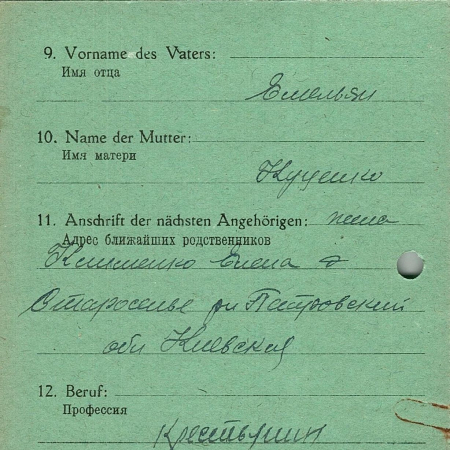 9. Vorname des Vaters:
Имя отца
Емельян
10. Name der Mutter:
Имя матери
Куценко
11. Anschrift der nächsten Angehörigen: жена
Адрес ближайших родственников
Клименко Елена
Староселье рн Петровский
обл Киевская
12. Beruf:
Профессия
Крестьянин